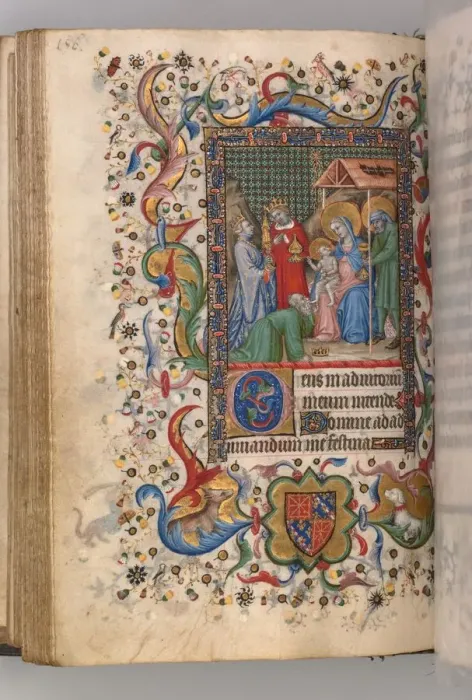 Deus in adiutoriu
meum intende
Domine ad ad
iuuandum me festina